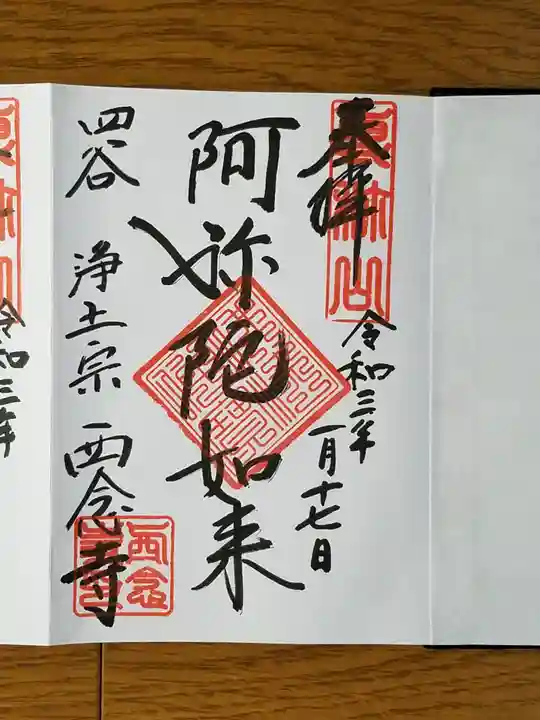 奉拝
令和三年
一月十七日
阿弥陀如来
四谷
浄土宗 西念寺
西念
令和三年